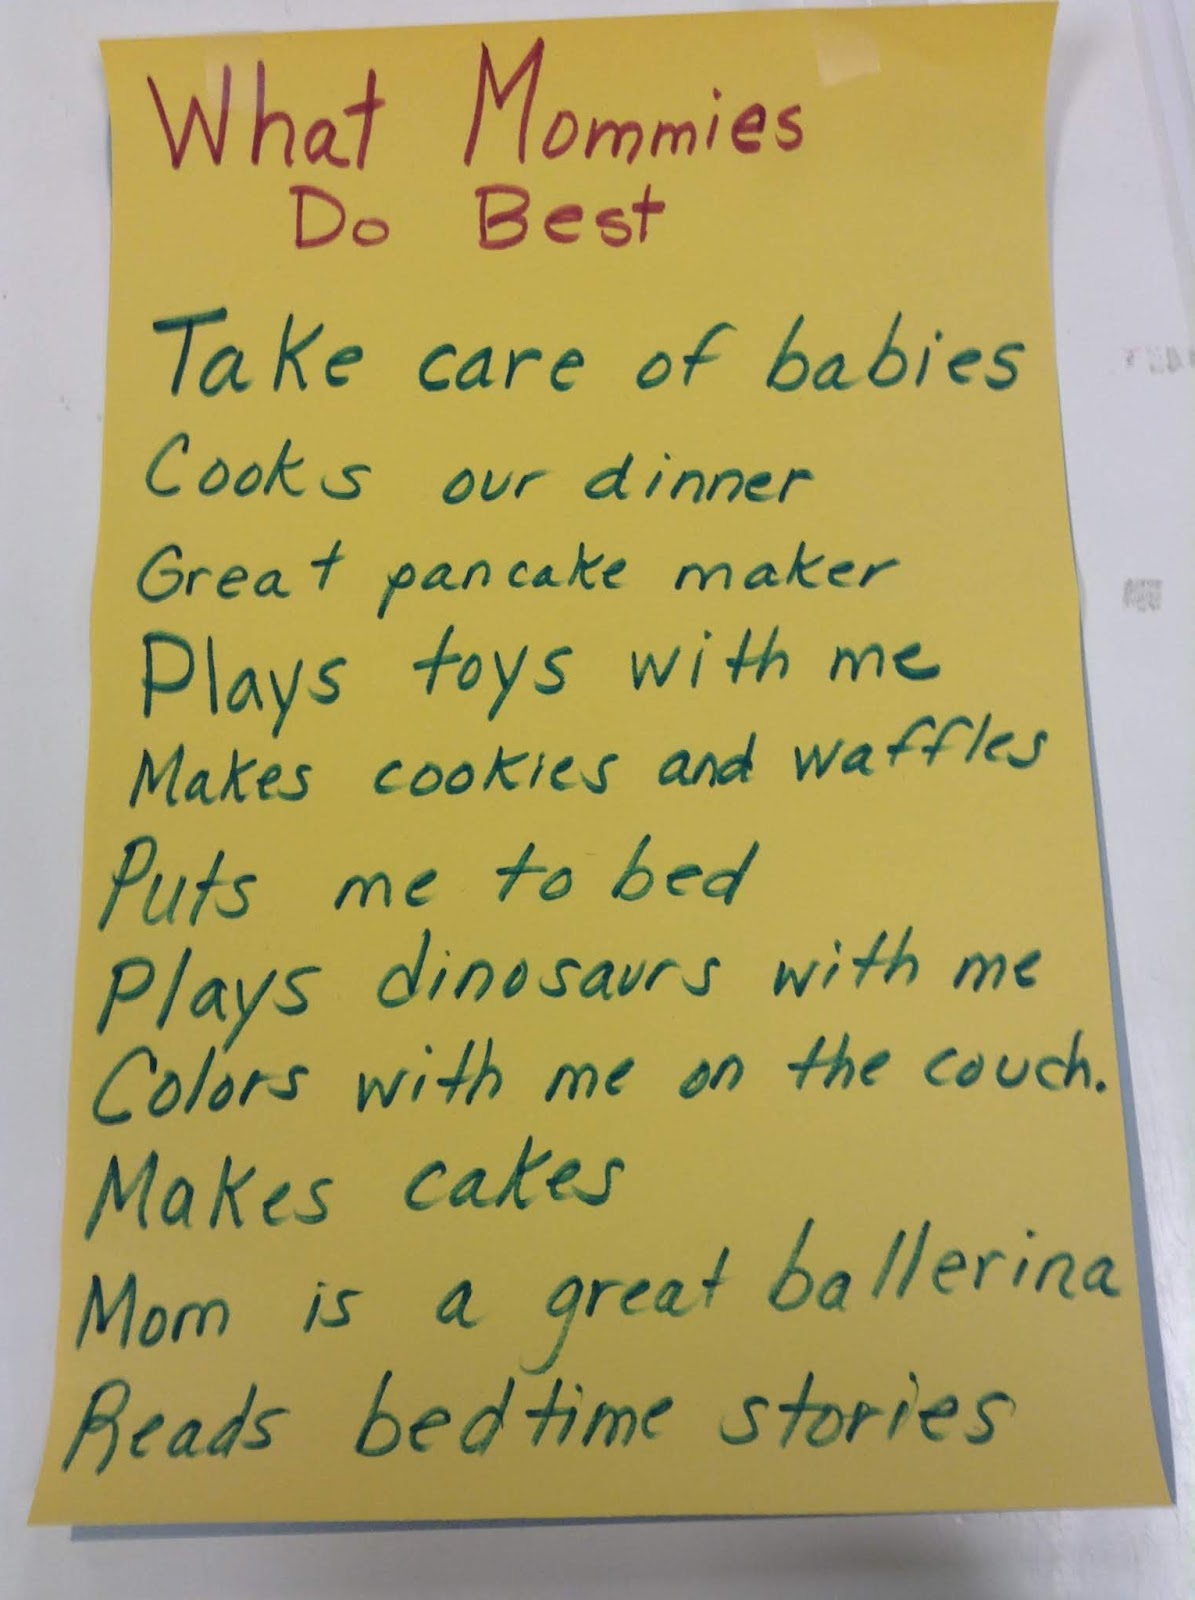 What Mommies
Do Best
Take care of babies
Cooks our dinner
Great pancake maker
Plays toys with me
Makes cookies and waffles
Puts me to bed
Plays dinosaurs with me
Colors with me on the couch.
Makes cakes
Mom is a great ballerina
Reads bedtime stories